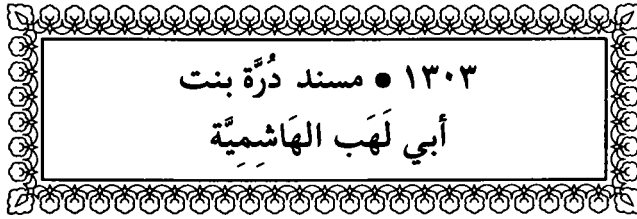 ١٣٠٣ ● مسند دُرَّة بنت
أبي لَهَب الهَاشِمِيَّة